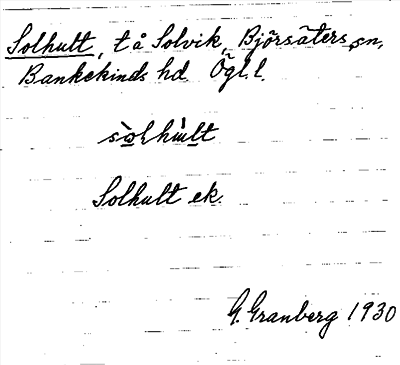 Solhult, t å Solvik, Björsäters sn,
Bankekinds hd. Ögl. l.
sòlhùlt
Solhult ek.
G. Granberg 1930